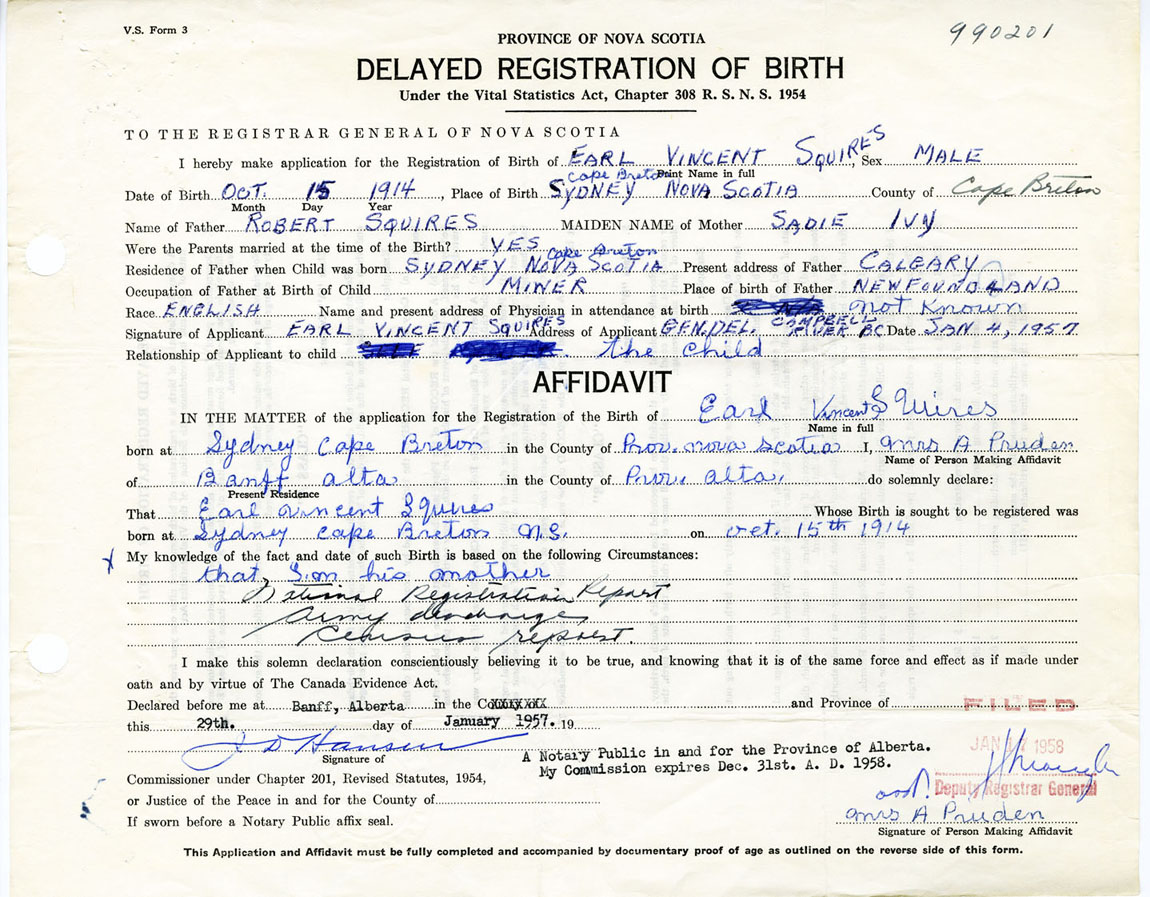 V.S. Form 3
990201
PROVINCE OF NOVA SCOTIA
DELAYED REGISTRATION OF BIRTH
Under the Vital Statistics Act, Chapter 308 R. S. N. S. 1954
TO THE REGISTRAR GENERAL OF NOVA SCOTIA
I hereby make application for the Registration of Birth of EARL VINCENT SQUIRES Sex MALE
Print Name in full
Cape Breton
Date of Birth OCT. 15 1914, Place of Birth SYDNEY NOVA SCOTIA County of Cape Breton
Month Day Year
Name of Father ROBERT SQUIRES MAIDEN NAME of Mother SADIE IVY
Were the Parents married at the time of the Birth? YES
Cape Breton
Residence of Father when Child was born SYDNEY NOVA SCOTIA Present address of Father CALGARY
Occupation of Father at Birth of Child MINER Place of birth of Father NEWFOUNDLAND
Race ENGLISH Name and present address of Physician in attendance at birth not Known
Signature of Applicant EARL VINCENT SQUIRES Address of Applicant GEN. DEL. CAMPBELL RIVER BC Date JAN 4, 1957
Relationship of Applicant to child the child
AFFIDAVIT
IN THE MATTER of the application for the Registration of the Birth of Earl Vincent Squires
Name in full
born at Sydney Cape Breton in the County of Prov. nova scotia I, mrs A Pruden
Name of Person Making Affidavit
of Banff alta in the County of Prov. alta. do solemnly declare:
Present Residence
That Earl vincent Squires Whose Birth is sought to be registered was
born at Sydney Cape Breton N.S. on oct. 15th 1914
My knowledge of the fact and date of such Birth is based on the following Circumstances:
that, I on his mother
National Registration Report
Army discharge
Census report.
I make this solemn declaration conscientiously believing it to be true, and knowing that it is of the same force and effect as if made under
oath and by virtue of The Canada Evidence Act.
Declared before me at Banff, Alberta in the County of and Province of
FILED
this 29th. day of January 1957. 19
JAN 17 1958
J D Hansen
Signature of
A Notary Public in and for the Province of Alberta.
My Commission expires Dec. 31st. A. D. 1958.
Commissioner under Chapter 201, Revised Statutes, 1954,
Deputy Registrar General
or Justice of the Peace in and for the County of
mrs A Pruden
If sworn before a Notary Public affix seal.
Signature of Person Making Affidavit
This Application and Affidavit must be fully completed and accompanied by documentary proof of age as outlined on the reverse side of this form.